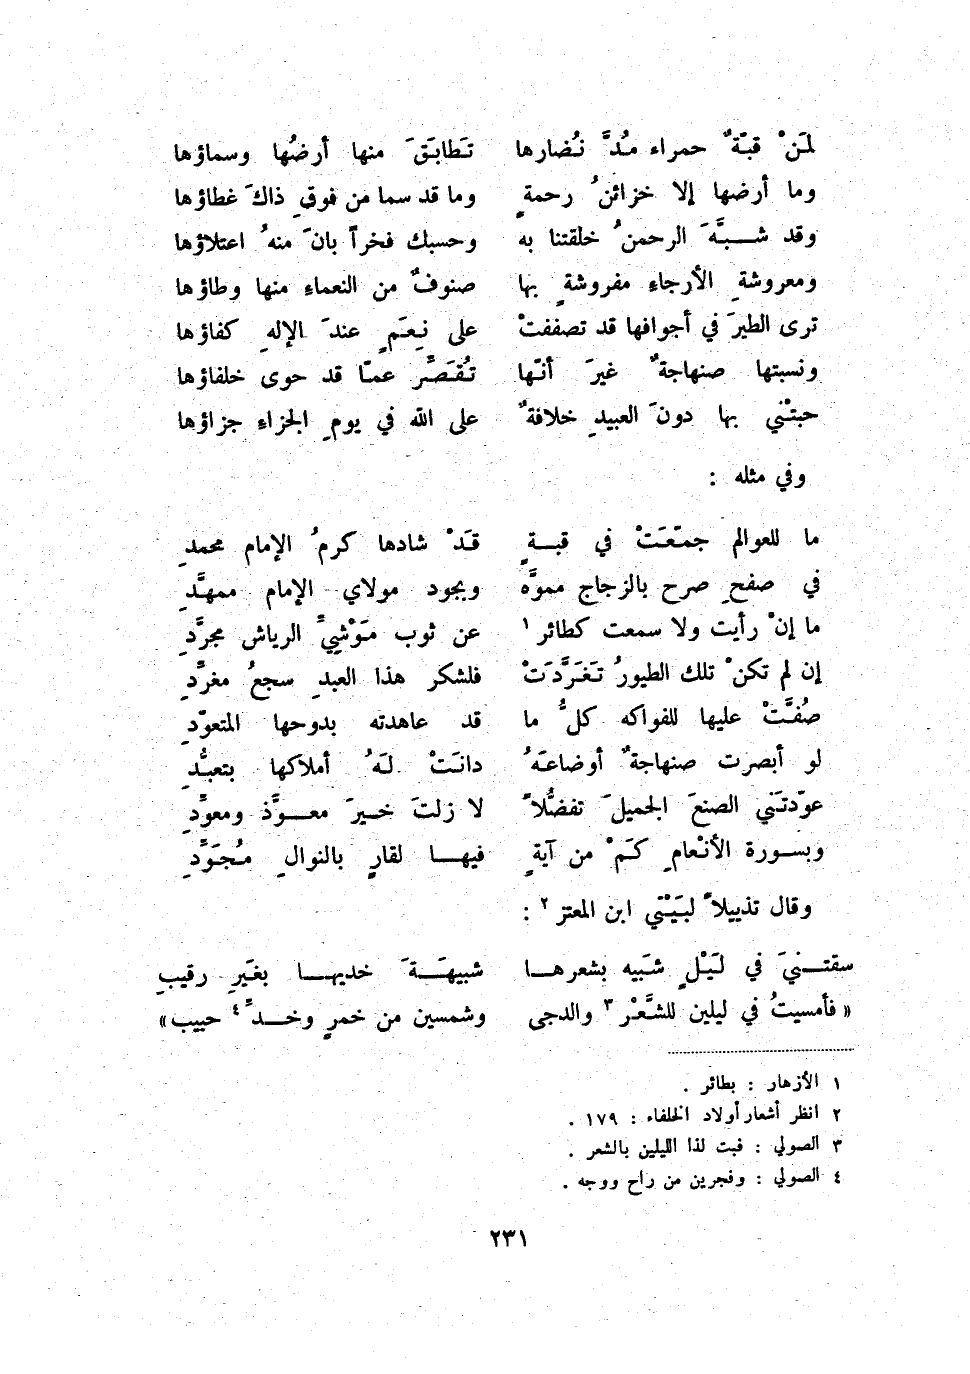 لمَنْ قبّةٌ حمراء مُدَّ نُضارها تَطابَقَ منها أرضُها وسماؤها
وما أرضها إلا خزائنُ رحمةٍ وما قد سما من فوقِ ذاكَ غطاؤها
وقد شبَّهَ الرحمنُ خلقتنا به وحسبك فخراً بانَ منهُ اعتلاؤها
ومعروشةِ الأرجاءِ مفروشةٍ بها صنوفٌ من النعماءِ منها وطاؤها
ترى الطيرَ في أجوافها قد تصففتْ على نِعَمٍ عندَ الإلهِ كفاؤها
ونسبتها صنهاجةٌ غيرَ أنّها تُقَصِّر عمّا قد حوى خلفاؤها
حبتْني بها دونَ العبيدِ خلافةٌ على الله في يومِ الجزاءِ جزاؤها
وفي مثله :
ما للعوالم جمّعَتْ في قبةٍ قَدْ شادها كرمُ الإمام محمدِ
في صفحِ صرح بالزجاج مموَّه وبجود مولاي الإمام ممهَّدِ
ما إنْ رأيت ولا سمعت كطائر ١ عن ثوب مَوْشيِّ الرياش مجرَّدِ
إن لم تكنْ تلك الطيورُ تَغَرَّدَتْ فلشكر هذا العبدِ سجعُ مغرَّدِ
صُفَّتْ عليها للفواكه كلُّ ما قد عاهدته بدوحها المتعوّدِ
لو أبصرت صنهاجةٌ أوضاعَهُ دانَتْ لَهُ أملاكها بتعبُّدِ
عوّدتَني الصنعَ الجميلَ تفضُّلاً لا زلتَ خيرَ معوَّذ ومعوَّدِ
وبسورة الأنْعامِ كَمْ من آيةٍ فيها لقارٍ بالنوالِ مُجَوَّدِ
وقال تذييلاً لبَيْتي ابن المعتز ٢ :
سقتنيَ في لَيْلٍ شَبيه بشعرها شبيهَةَ خديها بغَيرِ رقيبِ
« فأمسيتُ في ليلين للشَّعْر ٣ والدجى وشمسين من خمرٍ وخدِّ ٤ حبيب »
١ الأزهار : بطائر .
٢ انظر أشعار أولاد الخلفاء : ١٧٩ .
٣ الصولي : فبت لذا الليلين بالشعر .
٤ الصولي : وفجرين من راح ووجه .
٢٣١